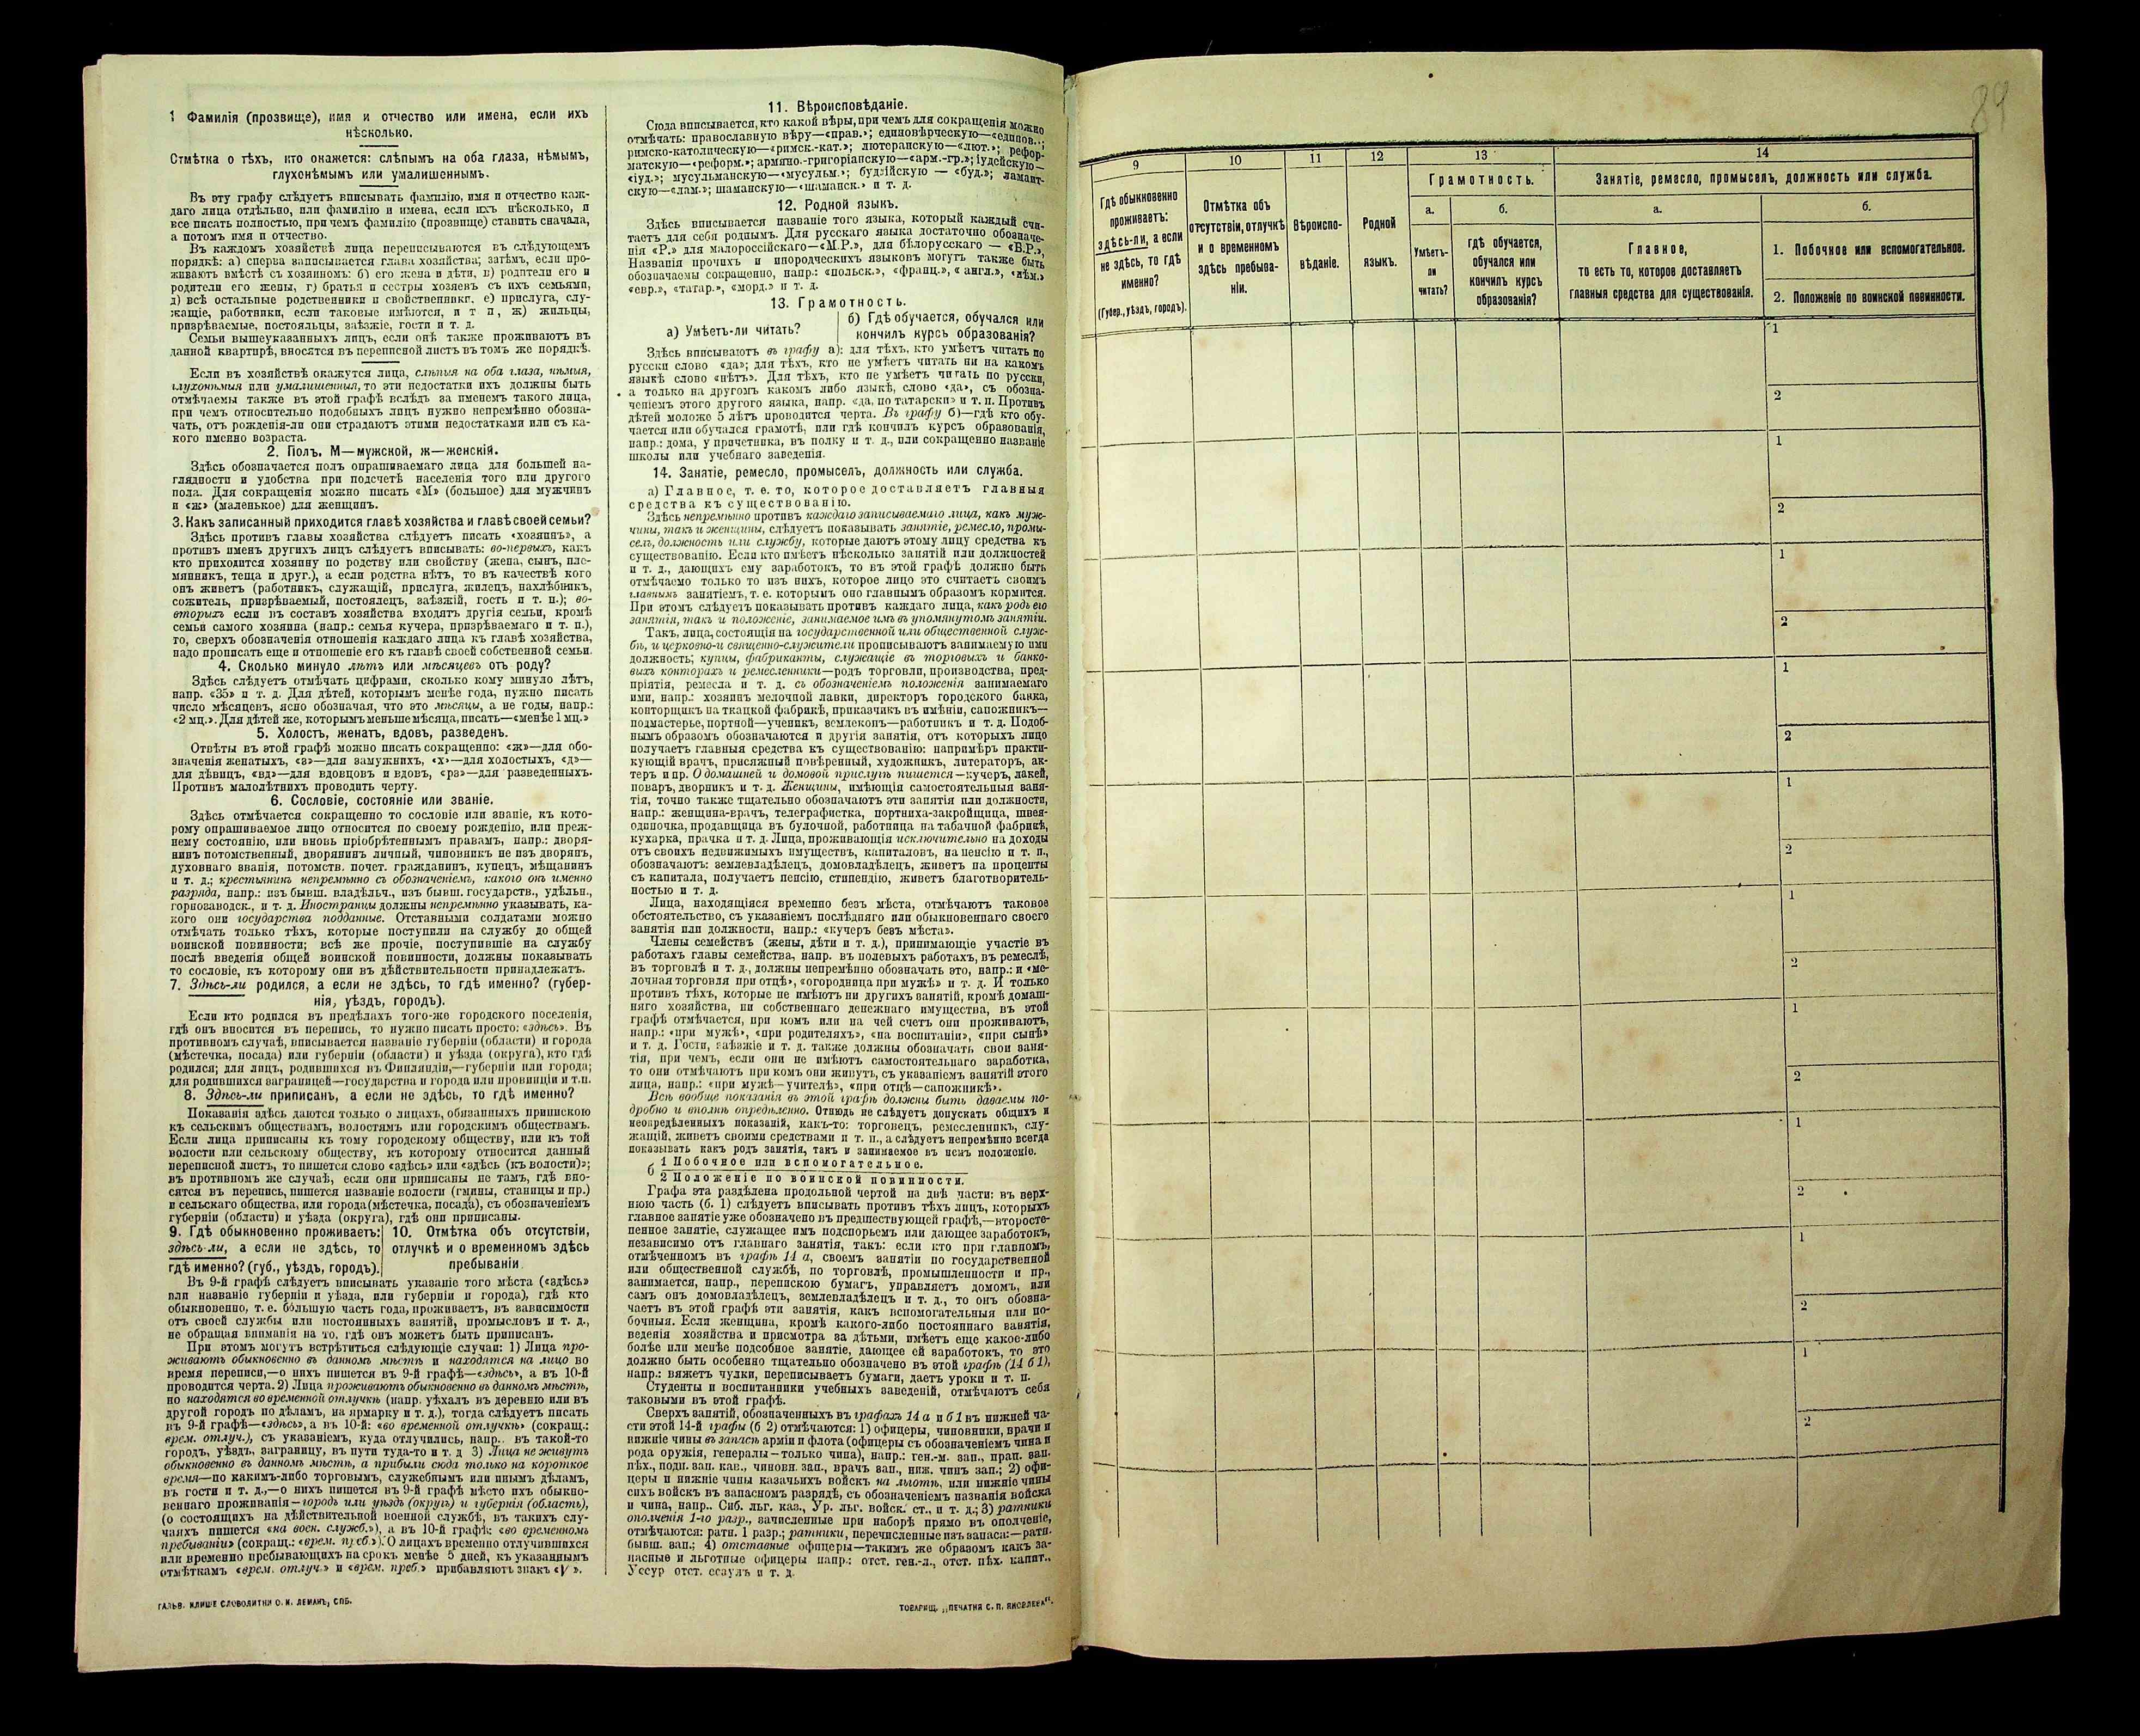 1 Фамилія (прозвище), имя и отчество или имена, если ихъ
нѣсколько.
Отмѣтка о тѣхъ, кто окажется: слѣпымъ на оба глаза, нѣмымъ,
глухонѣмымъ или умалишеннымъ.
Въ эту графу слѣдуетъ вписывать фамилію, имя и отчество каж-
даго лица отдѣльно, или фамилію и имена, если ихъ нѣсколько, и
все писать полностью, при чемъ фамилію (прозвище) ставить сначала,
а потомъ имя и отчество.
Въ каждомъ хозяйствѣ лица переписываются въ слѣдующемъ
порядкѣ: а) сперва записывается глава хозяйства; затѣмъ, если про-
живаютъ вмѣстѣ съ хозяиномъ: б) его жена и дѣти, в) родители его и
родители его жены, г) братья и сестры хозяевъ съ ихъ семьями,
д) всѣ остальные родственники и свойственники, е) прислуга, слу-
жащіе, работники, если таковые имѣются, и т п, ж) жильцы,
призрѣваемые, постояльцы, заѣзжіе, гости и т. д.
Семьи вышеуказанныхъ лицъ, если онѣ также проживаютъ въ
данной квартирѣ, вносятся въ переписной листъ въ томъ же порядкѣ.
Если въ хозяйствѣ окажутся лица, слѣпыя на оба глаза, нѣмыя,
глухонѣмыя или умалишенныя, то эти недостатки ихъ должны быть
отмѣчаемы также въ этой графѣ вслѣдъ за именемъ такого лица,
при чемъ относительно подобныхъ лицъ нужно непремѣнно обозна-
чать, отъ рожденія-ли они страдаютъ этими недостатками или съ ка-
кого именно возраста.
2. Полъ. М—мужской, ж—женскій.
Здѣсь обозначается полъ опрашиваемаго лица для большей на-
глядности и удобства при подсчетѣ населенія того или другого
пола. Для сокращенія можно писать «М» (большое) для мужчинъ
и «ж» (маленькое) для женщинъ.
3. Какъ записанный приходится главѣ хозяйства и главѣ своей семьи?
Здѣсь противъ главы хозяйства слѣдуетъ писать «хозяинъ», а
противъ именъ другихъ лицъ слѣдуетъ вписывать: во-первыхъ, какъ
кто приходится хозяину по родству или свойству (жена, сынъ, пле-
мянникъ, теща и друг.), а если родства нѣтъ, то въ качествѣ кого
онъ живетъ (работникъ, служащій, прислуга, жилецъ, нахлѣбникъ,
сожитель, призрѣваемый, постоялецъ, заѣзжій, гость и т. п.); во-
вторыхъ если въ составъ хозяйства входятъ другія семьи, кромѣ
семьи самого хозяина (напр.: семья кучера, призрѣваемаго и т. п.),
то, сверхъ обозначенія отношенія каждаго лица къ главѣ хозяйства,
надо прописать еще и отношеніе его къ главѣ своей собственной семьи.
4. Сколько минуло лѣтъ или мѣсяцевъ отъ роду?
Здѣсь слѣдуетъ отмѣчать цифрами, сколько кому минуло лѣтъ,
напр. «35» и т. д. Для дѣтей, которымъ менѣе года, нужно писать
число мѣсяцевъ, ясно обозначая, что это мѣсяцы, а не годы, напр.:
«2 мц.». Для дѣтей же, которымъ меньше мѣсяца, писать—«менѣе 1 мц.»
5. Холостъ, женатъ, вдовъ, разведенъ.
Отвѣты въ этой графѣ можно писать сокращенно: «ж»—для обо-
значенія женатыхъ, «з»—для замужнихъ, «х»—для холостыхъ, «д»—
для дѣвицъ, «вд»—для вдовцовъ и вдовъ, «рз»—для разведенныхъ.
Противъ малолѣтнихъ проводить черту.
6. Сословіе, состояніе или званіе.
Здѣсь отмѣчается сокращенно то сословіе или званіе, къ кото-
рому опрашиваемое лицо относится по своему рожденію, или преж-
нему состоянію, или вновь пріобрѣтеннымъ правамъ, напр.: дворя-
нинъ потомственный, дворянинъ личный, чиновникъ не изъ дворянъ,
духовнаго званія, потомств. почет. гражданинъ, купецъ, мѣщанинъ
и т. д.; крестьянинъ непремѣнно съ обозначеніемъ, какого онъ именно
разряда, напр.: изъ бывш. владѣльч., изъ бывш. государств., удѣльн.,
горнозаводск., и т. д. Иностранцы должны непремѣнно указывать, ка-
кого они государства подданные. Отставными солдатами можно
отмѣчать только тѣхъ, которые поступили на службу до общей
воинской повинности; всѣ же прочіе, поступившіе на службу
послѣ введенія общей воинской повинности, должны показывать
то сословіе, къ которому они въ дѣйствительности принадлежатъ.
7. Здѣсь-ли родился, а если не здѣсь, то гдѣ именно? (губер-
нія, уѣздъ, городъ).
Если кто родился въ предѣлахъ того-же городского поселенія,
гдѣ онъ вносится въ перепись, то нужно писать просто: «здѣсь». Въ
противномъ случаѣ, вписывается названіе губерніи (области) и города
(мѣстечка, посада) или губерніи (области) и уѣзда (округа), кто гдѣ
родился; для лицъ, родившихся въ Финляндіи,—губерніи или города;
для родившихся заграницей—государства и города или провинціи и т.п.
8. Здѣсь-ли приписанъ, а если не здѣсь, то гдѣ именно?
Показанія здѣсь даются только о лицахъ, обязанныхъ припискою
къ сельскимъ обществамъ, волостямъ или городскимъ обществамъ.
Если лица приписаны къ тому городскому обществу, или къ той
волости или сельскому обществу, къ которому относится данный
переписной листъ, то пишется слово «здѣсь» или «здѣсь (къ волости)»;
въ противномъ же случаѣ, если они приписаны не тамъ, гдѣ вно-
сятся въ перепись, пишется названіе волости (гмины, станицы и пр.)
и сельскаго общества, или города (мѣстечка, посада), съ обозначеніемъ
губерніи (области) и уѣзда (округа), гдѣ они приписаны.
9. Гдѣ обыкновенно проживаетъ:
здѣсь-ли, а если не здѣсь, то
гдѣ именно? (губ., уѣздъ, городъ).
10. Отмѣтка объ отсутствіи,
отлучкѣ и о временномъ здѣсь
пребываніи.
Въ 9-й графѣ слѣдуетъ вписывать указаніе того мѣста («здѣсь»
или названіе губерніи и уѣзда, или губерніи и города), гдѣ кто
обыкновенно, т. е. бóльшую часть года, проживаетъ, въ зависимости
отъ своей службы или постоянныхъ занятій, промысловъ и т. д.,
не обращая вниманія на то, гдѣ онъ можетъ быть приписанъ.
При этомъ могутъ встрѣтиться слѣдующіе случаи: 1) Лица про-
живаютъ обыкновенно въ данномъ мѣстѣ и находятся на лицо во
время переписи,—о нихъ пишется въ 9-й графѣ—«здѣсь», а въ 10-й
проводится черта. 2) Лица проживаютъ обыкновенно въ данномъ мѣстѣ,
но находятся во временной отлучкѣ (напр. уѣхалъ въ деревню или въ
другой городъ по дѣламъ, на ярмарку и т. д.), тогда слѣдуетъ писать
въ 9-й графѣ—«здѣсь», а въ 10-й: «во временной отлучкѣ» (сокращ.:
врем. отлуч.), съ указаніемъ, куда отлучились, напр.. въ такой-то
городъ, уѣздъ, заграницу, въ пути туда-то и т. д 3) Лица не живутъ
обыкновенно въ данномъ мѣстѣ, а прибыли сюда только на короткое
время—по какимъ-либо торговымъ, служебнымъ или инымъ дѣламъ,
въ гости и т. д.,—о нихъ пишется въ 9-й графѣ мѣсто ихъ обыкно-
веннаго проживанія—городъ или уѣздъ (округъ) и губернія (область),
(о состоящихъ на дѣйствительной военной службѣ, въ такихъ слу-
чаяхъ пишется «на воен. служб.»), а въ 10-й графѣ: «во временномъ
пребываніи» (сокращ.: «врем. преб.»). О лицахъ временно отлучившихся
или временно пребывающихъ на срокъ менѣе 5 дней, къ указаннымъ
отмѣткамъ «врем. отлуч.» и «врем. преб.» прибавляютъ знакъ «V».
ГАЛЬВ. КЛИШЕ СЛОВОЛИТНИ О. И. ЛЕМАНЪ, СПБ.
11. Вѣроисповѣданіе.
Сюда вписывается, кто какой вѣры, при чемъ для сокращенія можно
отмѣчать: православную вѣру—«прав.»; единовѣрческую—«единов.»;
римско-католическую—«римск.-кат.»; лютеранскую—«лют.»; рефор-
матскую—«реформ.»; армяно.-григоріанскую—«арм.-гр.»; іудейскую—
«іуд.»; мусульманскую—«мусульм.»; буддійскую — «буд.»; ламаит-
скую—«лам.»; шаманскую—«шаманск.» и т. д.
12. Родной языкъ.
Здѣсь вписывается названіе того языка, который каждый счи-
таетъ для себя роднымъ. Для русскаго языка достаточно обозначе-
нія «Р.» для малороссійскаго—«М.Р.», для бѣлорусскаго — «Б.Р.»,
Названія прочихъ и инородческихъ языковъ могутъ также быть
обозначаемы сокращенно, напр.: «польск.», «франц.», « англ.», «нѣм.»
«евр.», «татар.», «морд.» и т. д.
13. Грамотность.
а) Умѣетъ-ли читать?
б) Гдѣ обучается, обучался или
кончилъ курсъ образованія?
Здѣсь вписываютъ въ графу а): для тѣхъ, кто умѣетъ читать по
русски слово «да»; для тѣхъ, кто не умѣетъ читать ни на какомъ
языкѣ слово «нѣтъ». Для тѣхъ, кто не умѣетъ читать по русски,
а только на другомъ какомъ либо языкѣ, слово «да», съ обозна-
ченіемъ этого другого языка, напр. «да, по татарски» и т. п. Противъ
дѣтей моложе 5 лѣтъ проводится черта. Въ графу б)—гдѣ кто обу-
чается или обучался грамотѣ, или гдѣ кончилъ курсъ образованія,
напр.: дома, у причетника, въ полку и т. д., или сокращенно названіе
школы или учебнаго заведенія.
14. Занятіе, ремесло, промыселъ, должность или служба.
а) Главное, т. е. то, которое доставляетъ главныя
средства къ существованію.
Здѣсь непремѣнно противъ каждаго записываемаго лица, какъ муж-
чины, такъ и женщины, слѣдуетъ показывать занятіе, ремесло, промы-
селъ, должность или службу, которые даютъ этому лицу средства къ
существованію. Если кто имѣетъ нѣсколько занятій или должностей
и т. д., дающихъ ему заработокъ, то въ этой графѣ должно быть
отмѣчаемо только то изъ нихъ, которое лицо это считаетъ своимъ
главнымъ занятіемъ, т. е. которымъ оно главнымъ образомъ кормится.
При этомъ слѣдуетъ показывать противъ каждаго лица, какъ родъ его
занятія, такъ и положеніе, занимаемое имъ въ упомянутомъ занятіи.
Такъ, лица, состоящія на государственной или общественной служ-
бѣ, и церковно-и священно-служители прописываютъ занимаемую ими
должность; купцы, фабриканты, служащіе въ торговыхъ и банко-
выхъ конторахъ и ремесленники—родъ торговли, производства, пред-
пріятія, ремесла и т. д. съ обозначеніемъ положенія занимаемаго
ими, напр.: хозяинъ мелочной лавки, директоръ городского банка,
конторщикъ на ткацкой фабрикѣ, приказчикъ въ имѣніи, сапожникъ—
подмастерье, портной—ученикъ, землекопъ—работникъ и т. д. Подоб-
нымъ образомъ обозначаются и другія занятія, отъ которыхъ лицо
получаетъ главныя средства къ существованію: напримѣръ практи-
кующій врачъ, присяжный повѣренный, художникъ, литераторъ, ак-
теръ и пр. О домашней и домовой прислугѣ пишется—кучеръ, лакей,
поваръ, дворникъ и т. д. Женщины, имѣющія самостоятельныя заня-
тія, точно также тщательно обозначаютъ эти занятія или должности,
напр.: женщина-врачъ, телеграфистка, портниха-закройщица, швея-
одиночка, продавщица въ булочной, работница на табачной фабрикѣ,
кухарка, прачка и т. д. Лица, проживающія исключительно на доходы
отъ своихъ недвижимыхъ имуществъ, капиталовъ, на пенсію и т. п.,
обозначаютъ: землевладѣлецъ, домовладѣлецъ, живетъ на проценты
съ капитала, получаетъ пенсію, стипендію, живетъ благотворитель-
ностью и т. д.
Лица, находящіяся временно безъ мѣста, отмѣчаютъ таковое
обстоятельство, съ указаніемъ послѣдняго или обыкновеннаго своего
занятія или должности, напр.: «кучеръ безъ мѣста».
Члены семействъ (жены, дѣти и т. д.), принимающіе участіе въ
работахъ главы семейства, напр. въ полевыхъ работахъ, въ ремеслѣ,
въ торговлѣ и т. д., должны непремѣнно обозначать это, напр.: и «ме-
лочная торговля при отцѣ», «огородница при мужѣ» и т. д. И только
противъ тѣхъ, которые не имѣютъ ни другихъ занятій, кромѣ домаш-
няго хозяйства, ни собственнаго денежнаго имущества, въ этой
графѣ отмѣчается, при комъ или на чей счетъ они проживаютъ,
напр.: «при мужѣ», «при родителяхъ», «на воспитаніи», «при сынѣ»
и т. д. Гости, заѣзжіе и т. д. также должны обозначать свои заня-
тія, при чемъ, если они не имѣютъ самостоятельнаго заработка,
то они отмѣчаютъ при комъ они живутъ, съ указаніемъ занятій этого
лица, напр.: «при мужѣ—учителѣ», «при отцѣ—сапожникѣ».
Всѣ вообще показанія въ этой графѣ должны быть даваемы по-
дробно и вполнѣ опредѣленно. Отнюдь не слѣдуетъ допускать общихъ и
неопредѣленныхъ показаній, какъ-то: торговецъ, ремесленникъ, слу-
жащій, живетъ своими средствами и т. п., а слѣдуетъ непремѣнно всегда
показывать какъ родъ занятія, такъ и занимаемое въ немъ положеніе.
б
1 Побочное или вспомогательное.
2 Положеніе по воинской повинности.
Графа эта раздѣлена продольной чертой на двѣ части: въ верх-
нюю часть (б. 1) слѣдуетъ вписывать противъ тѣхъ лицъ, которыхъ
главное занятіе уже обозначено въ предшествующей графѣ,—второсте-
пенное занятіе, служащее имъ подспорьемъ или дающее заработокъ,
независимо отъ главнаго занятія, такъ: если кто при главномъ,
отмѣченномъ въ графѣ 14 а, своемъ занятіи по государственной
или общественной службѣ, по торговлѣ, промышленности и пр.,
занимается, напр., перепискою бумагъ, управляетъ домомъ, или
самъ онъ домовладѣлецъ, землевладѣлецъ и т. д., то онъ обозна-
чаетъ въ этой графѣ эти занятія, какъ вспомогательныя или по-
бочныя. Если женщина, кромѣ какого-либо постояннаго занятія,
веденія хозяйства и присмотра за дѣтьми, имѣетъ еще какое-либо
болѣе или менѣе подсобное занятіе, дающее ей заработокъ, то это
должно быть особенно тщательно обозначено въ этой графѣ (14 б 1),
напр.: вяжетъ чулки, переписываетъ бумаги, даетъ уроки и т. п.
Студенты и воспитанники учебныхъ заведеній, отмѣчаютъ себя
таковыми въ этой графѣ.
Сверхъ занятій, обозначенныхъ въ графахъ 14 а и б 1 въ нижней ча-
сти этой 14-й графы (б 2) отмѣчаются: 1) офицеры, чиновники, врачи и
нижніе чины въ запасѣ арміи и флота (офицеры съ обозначеніемъ чина и
рода оружія, генералы—только чина), напр.: ген.-м. зап., прап. зап.
пѣх., подп. зап. кав., чиновн. зап., врачъ зап., ниж. чинъ зап.; 2) офи-
церы и нижніе чины казачьихъ войскъ на льготѣ, или нижніе чины
сихъ войскъ въ запасномъ разрядѣ, съ обозначеніемъ названія войска
и чина, напр.. Сиб. льг. каз., Ур. льг. войск. ст., и т. д.; 3) ратники
ополченія 1-го разр., зачисленные при наборѣ прямо въ ополченіе,
отмѣчаются: ратн. 1 разр.; ратники, перечисленные изъ запаса:—ратн.
бывш. зап.; 4) отставные офицеры—такимъ же образомъ какъ за-
пасные и льготные офицеры напр.: отст. ген.-л., отст. пѣх. капит.,
Уссур отст. есаулъ и т. д.
ТОВАРИЩ. „ПЕЧАТНЯ С. П. ЯКОВЛЕВА“.
89
9
10
11
12
13
14
Гдѣ обыкновенно
проживаетъ:
здѣсь-ли, а если
не здѣсь, то гдѣ
именно?
(Губер., уѣздъ, городъ).
Отмѣтка объ
отсутствіи, отлучкѣ
и о временномъ
здѣсь пребыва-
ніи.
Вѣроиспо-
вѣданіе.
Родной
языкъ.
Грамотность.
а.
Умѣетъ-
ли
читать?
б.
гдѣ обучается,
обучался или
кончилъ курсъ
образованія?
Занятіе, ремесло, промыселъ, должность или служба.
а.
Главное,
то есть то, которое доставляетъ
главныя средства для существованія.
б.
1. Побочное или вспомогательное.
2. Положеніе по воинской повинности.
1
2
1
2
1
2
1
2
1
2
1
2
1
2
1
2
1
2
1
2